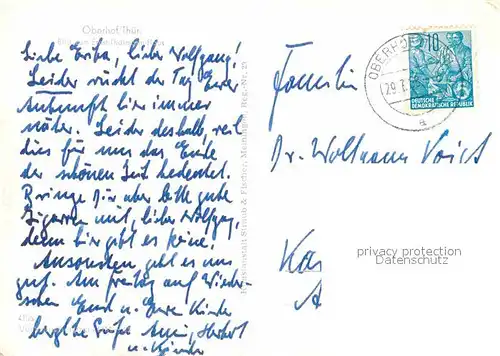 Oberhof/Thür.
Liebe Erika, lieber Wolfgang!
Leider rückt der Tag Eurer
Ankunft hier immer
näher. Leider deshalb, weil
dies für uns das Ende
der schönen Zeit bedeutet.
Bringe Dir aber bitte gute
Zigarren mit, lieber Wolfgang,
denn hier gibt es keine!
Ansonsten geht es uns
gut. Am Freitag auf Wieder-
sehen Euch u. Eure Kinder
herzliche Grüße Herbert
u. Kinder
Straub & Fischer, Meiningen
OBERHOF
29.7.
a
10
DEUTSCHE
DEMOKRATISCHE REPUBLIK
Familie
Dr. Wolfgang Voigt
privacy protection
Datenschutz